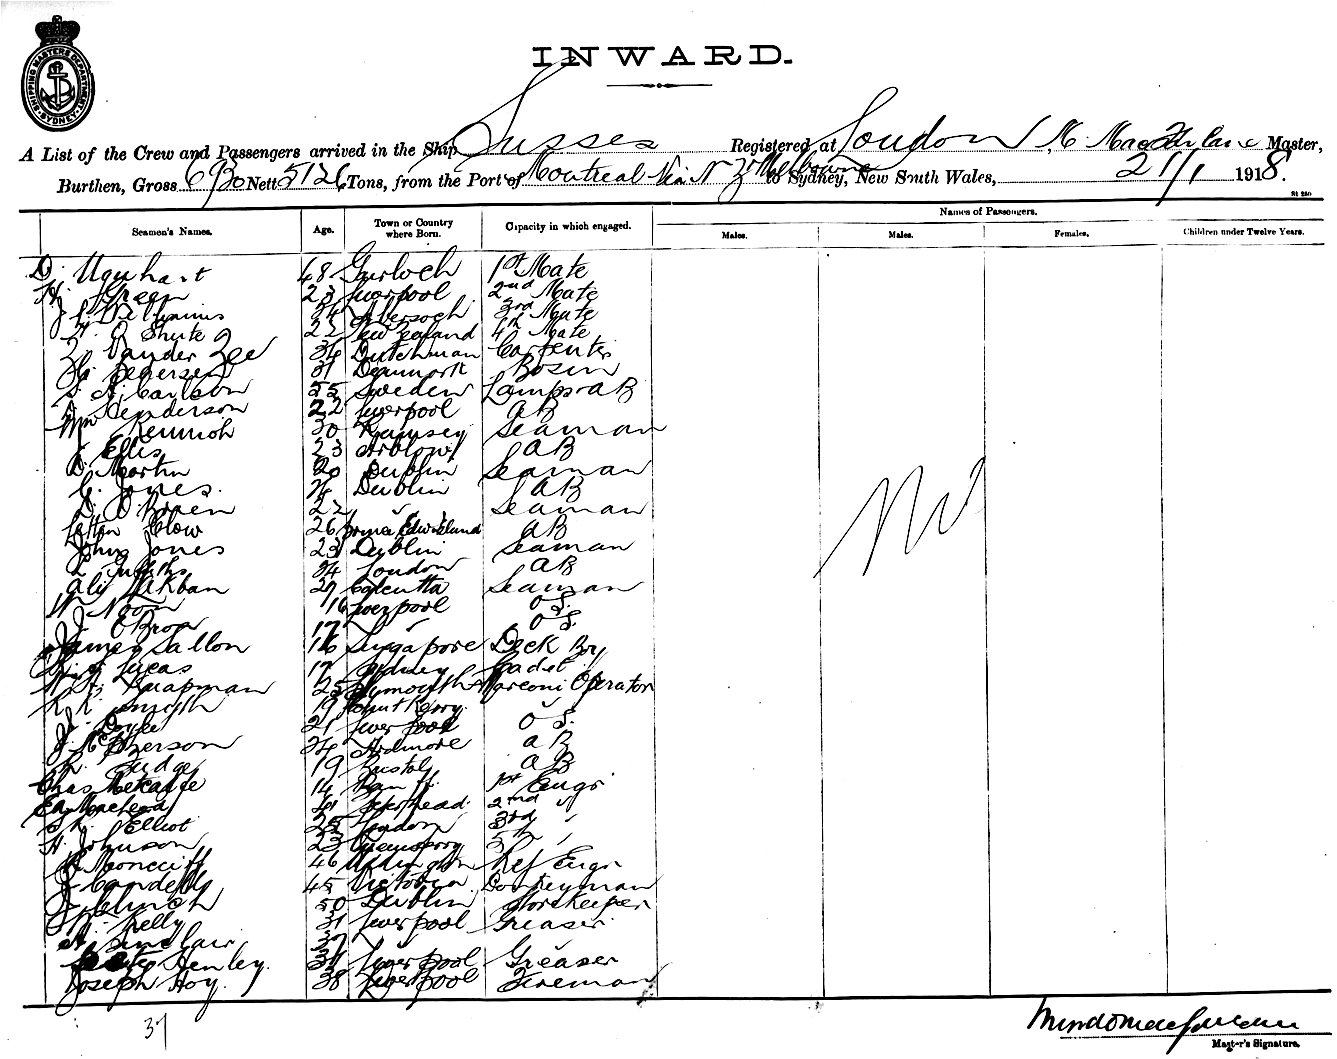 SHIPPING MASTERS DEPARTMENT SYDNEY
INWARD.
A List of the Crew and Passengers arrived in the Ship Sussex Registered at London, M. MacFarlane Master,
Burthen, Gross 6930 Nett 5126 Tons, from the Port of Montreal Via N Z & Melbourne to Sydney, New South Wales, 21/1 1918.
Seamen's Names. Age. Town or Country where Born. Capacity in which engaged. Names of Passengers.
Males. Males. Females. Children under Twelve Years.
D. Uquhart 48 Gairloch 1st Mate
H. Green 23 Liverpool 2nd Mate
Williams 34 Abersoch 3rd Mate
Shute 22 New Zealand 4th Mate
Z. Vander Zee 34 Dutchman Carpenter
H. Pedersen 31 Denmark Bosun
Carlson 55 Sweden Lamps & AB
Henderson 22 Liverpool AB
Wm Kennish 30 Ramsey Seaman
J Ellis 23 Arklow AB
D. Martin 20 Dublin Seaman
G. Jones Dublin AB
D. O'Brien 22 " Seaman
Clow 26 Prince Edw Island AB
John Jones 23 Dublin Seaman
Griffiths 34 London AB
Ali Akban 27 Calcutta Seaman
16 Liverpool O S.
17 " O S.
James Sallon 16 Singapore Deck Boy
Lucas 17 Sydney Cadet
Chapman 25 Plymouth Marconi Operator
Smyth 19 Count Kerry "
J. Doyle 21 Liverpool O S.
J. McPherson 34 Ardmore AB
Fudge 19 Bristol AB
Chas Metcalfe 1st Engr
Macleod 2nd "
Elliot 25 London 3rd "
H. Johnson 23 5th "
Moncrieff 46 Ref Engr
45 Victoria Donkeyman
J. Clinch 50 Dublin Storekeeper
Kelly 31 Liverpool Greaser
Sinclair 37 " "
Henley. 34 Liverpool Greaser
Joseph Hoy. 38 Liverpool Fireman
Nil
37
Master's Signature.